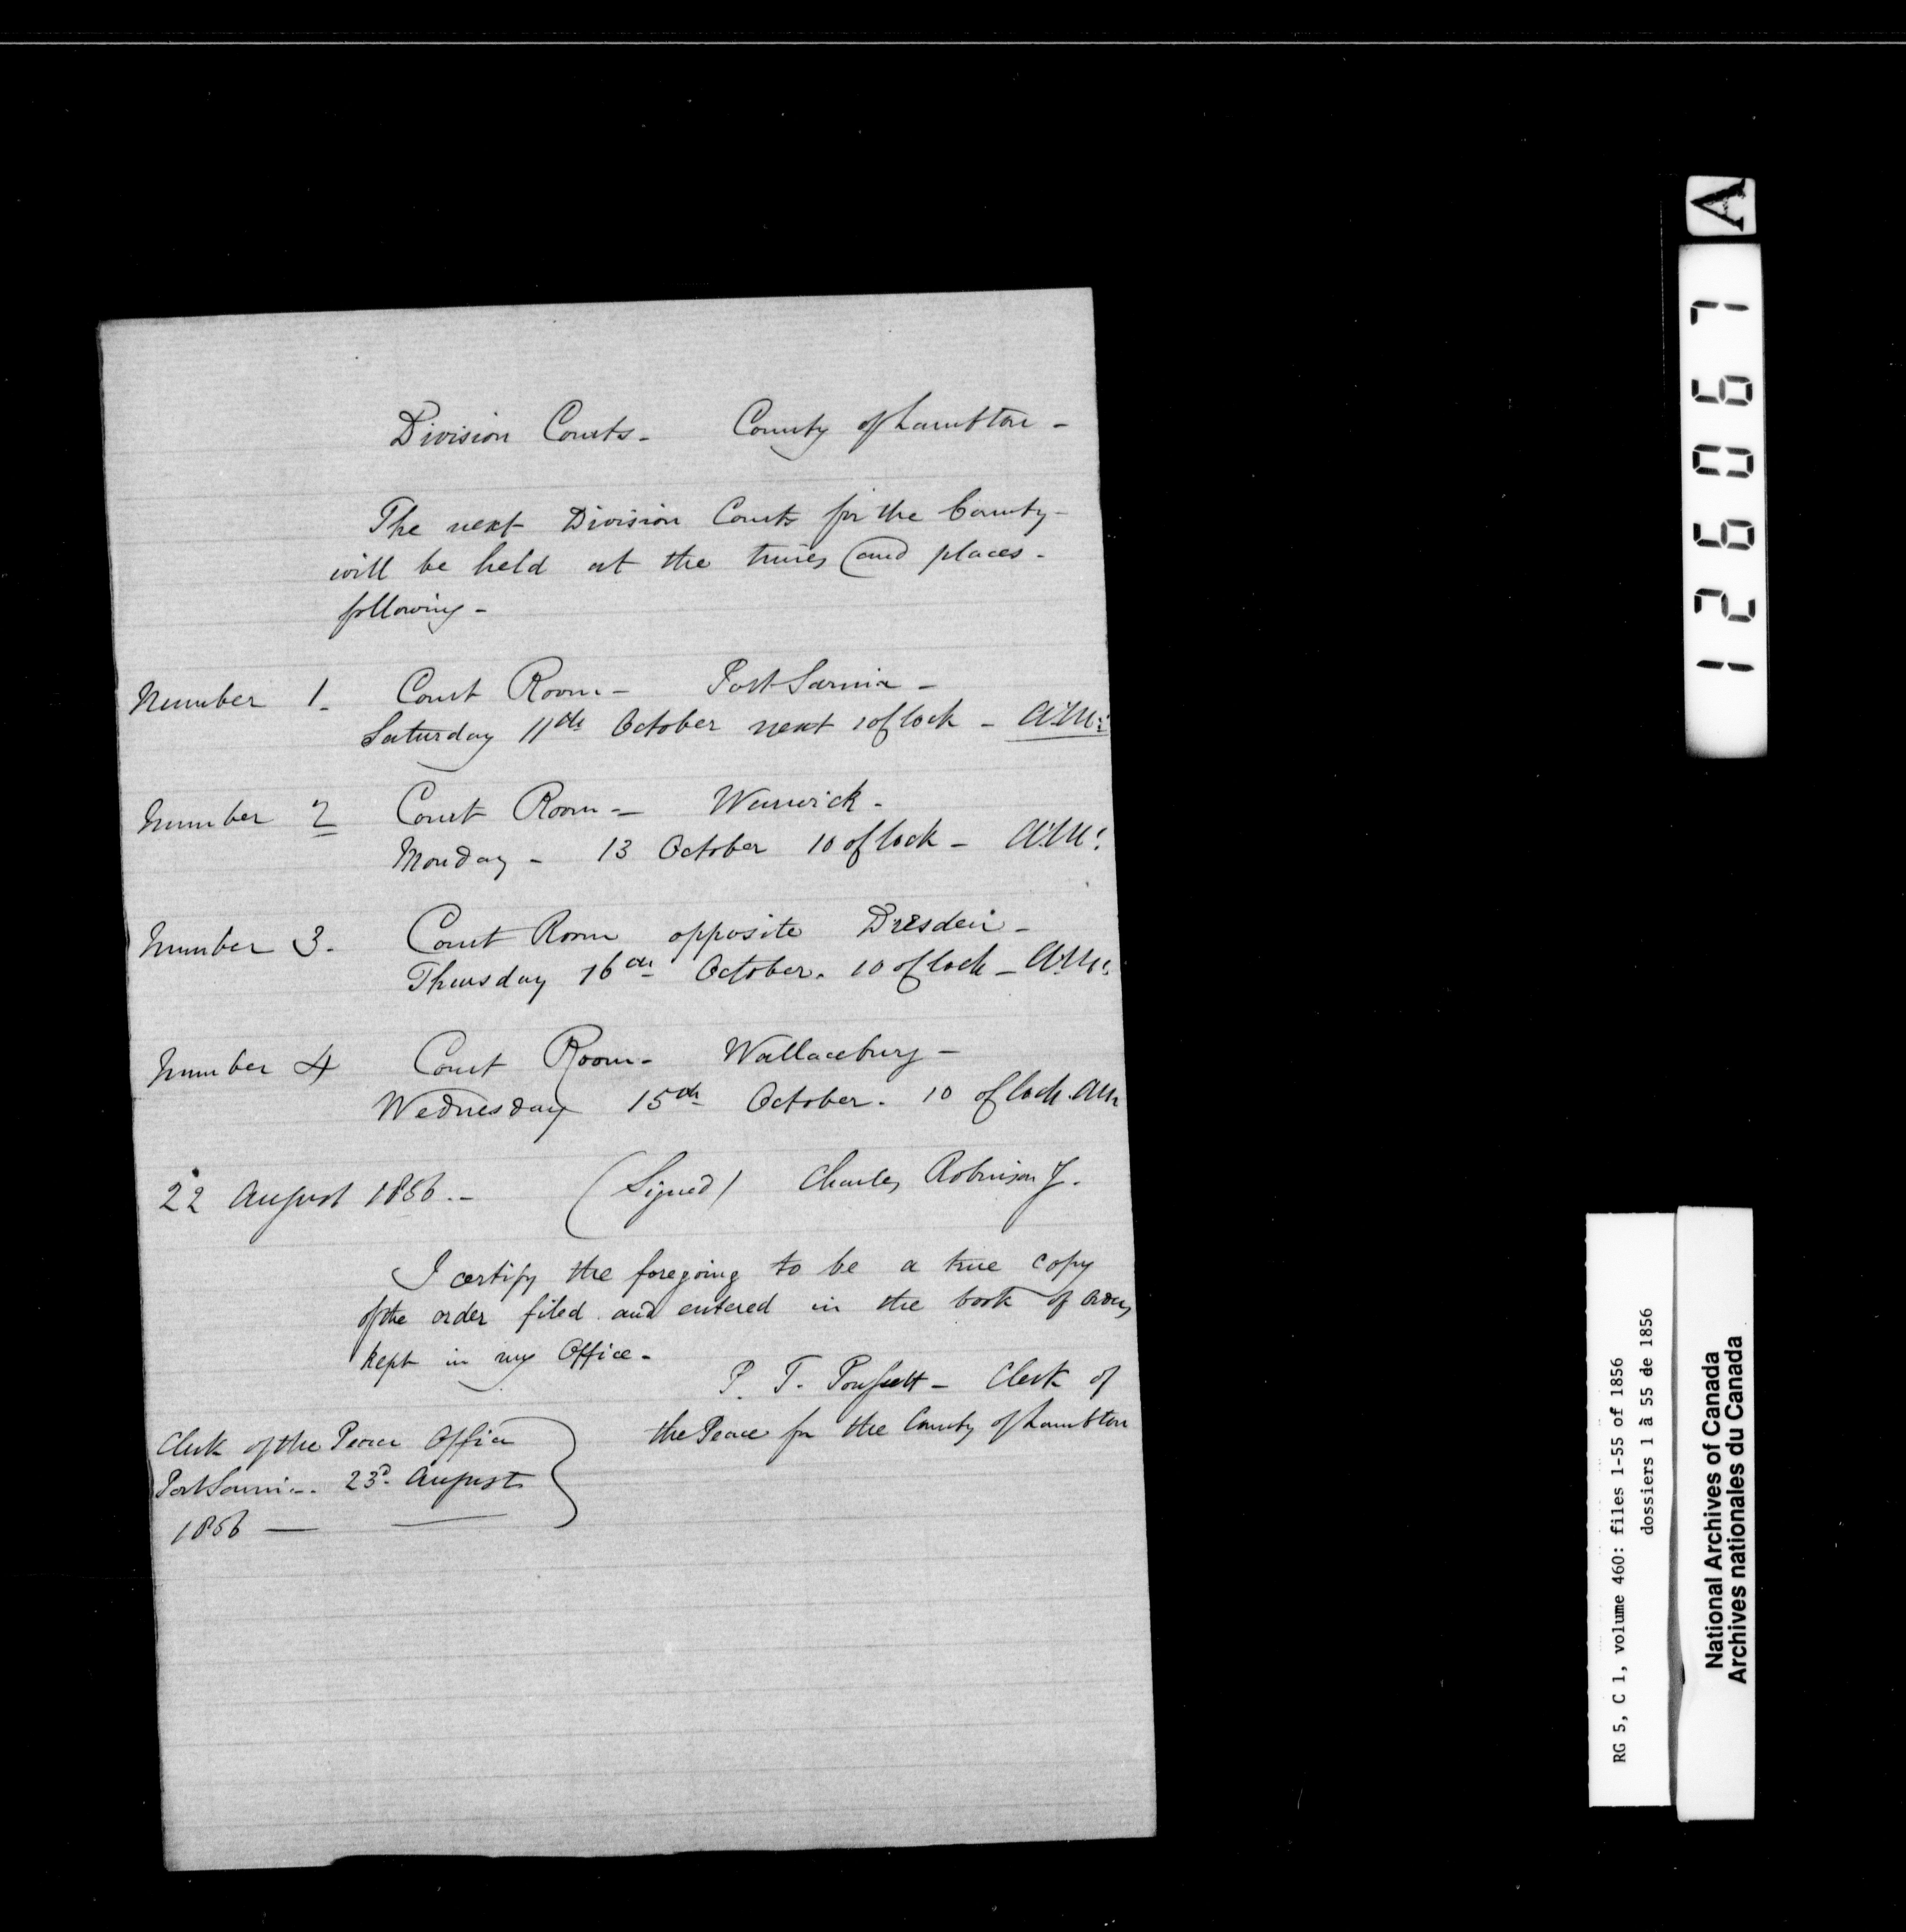 Division Courts - County of Lambton -
The next Division Courts for the County -
will be held at the times and places -
following -
Number 1. Court Room - Port Sarnia -
Saturday 11th October next 10 oClock - A.M.
Number 2 Court Room - Warwick -
Monday - 13 October 10 oClock - A.M.
Number 3. Court Room opposite Dresden -
Thursday 16th October. 10 oClock - A.M.
Number 4 Court Room - Wallaceburg -
Wednesday 15th October. 10 oClock. AM
22 August 1856. - (Signed) Charles Robinson J.
I certify the foregoing to be a true copy
of the order filed and entered in the book of orders
kept in my Office -
P. T. Poussett - Clerk of
the Peace for the County of Lambton
Clerk of the Peace Office
Port Sarnia. 23d. August
1856 —
A
126067
RG 5, C 1, volume 460: files 1-55 of 1856
dossiers 1 à 55 de 1856
National Archives of Canada
Archives nationales du Canada